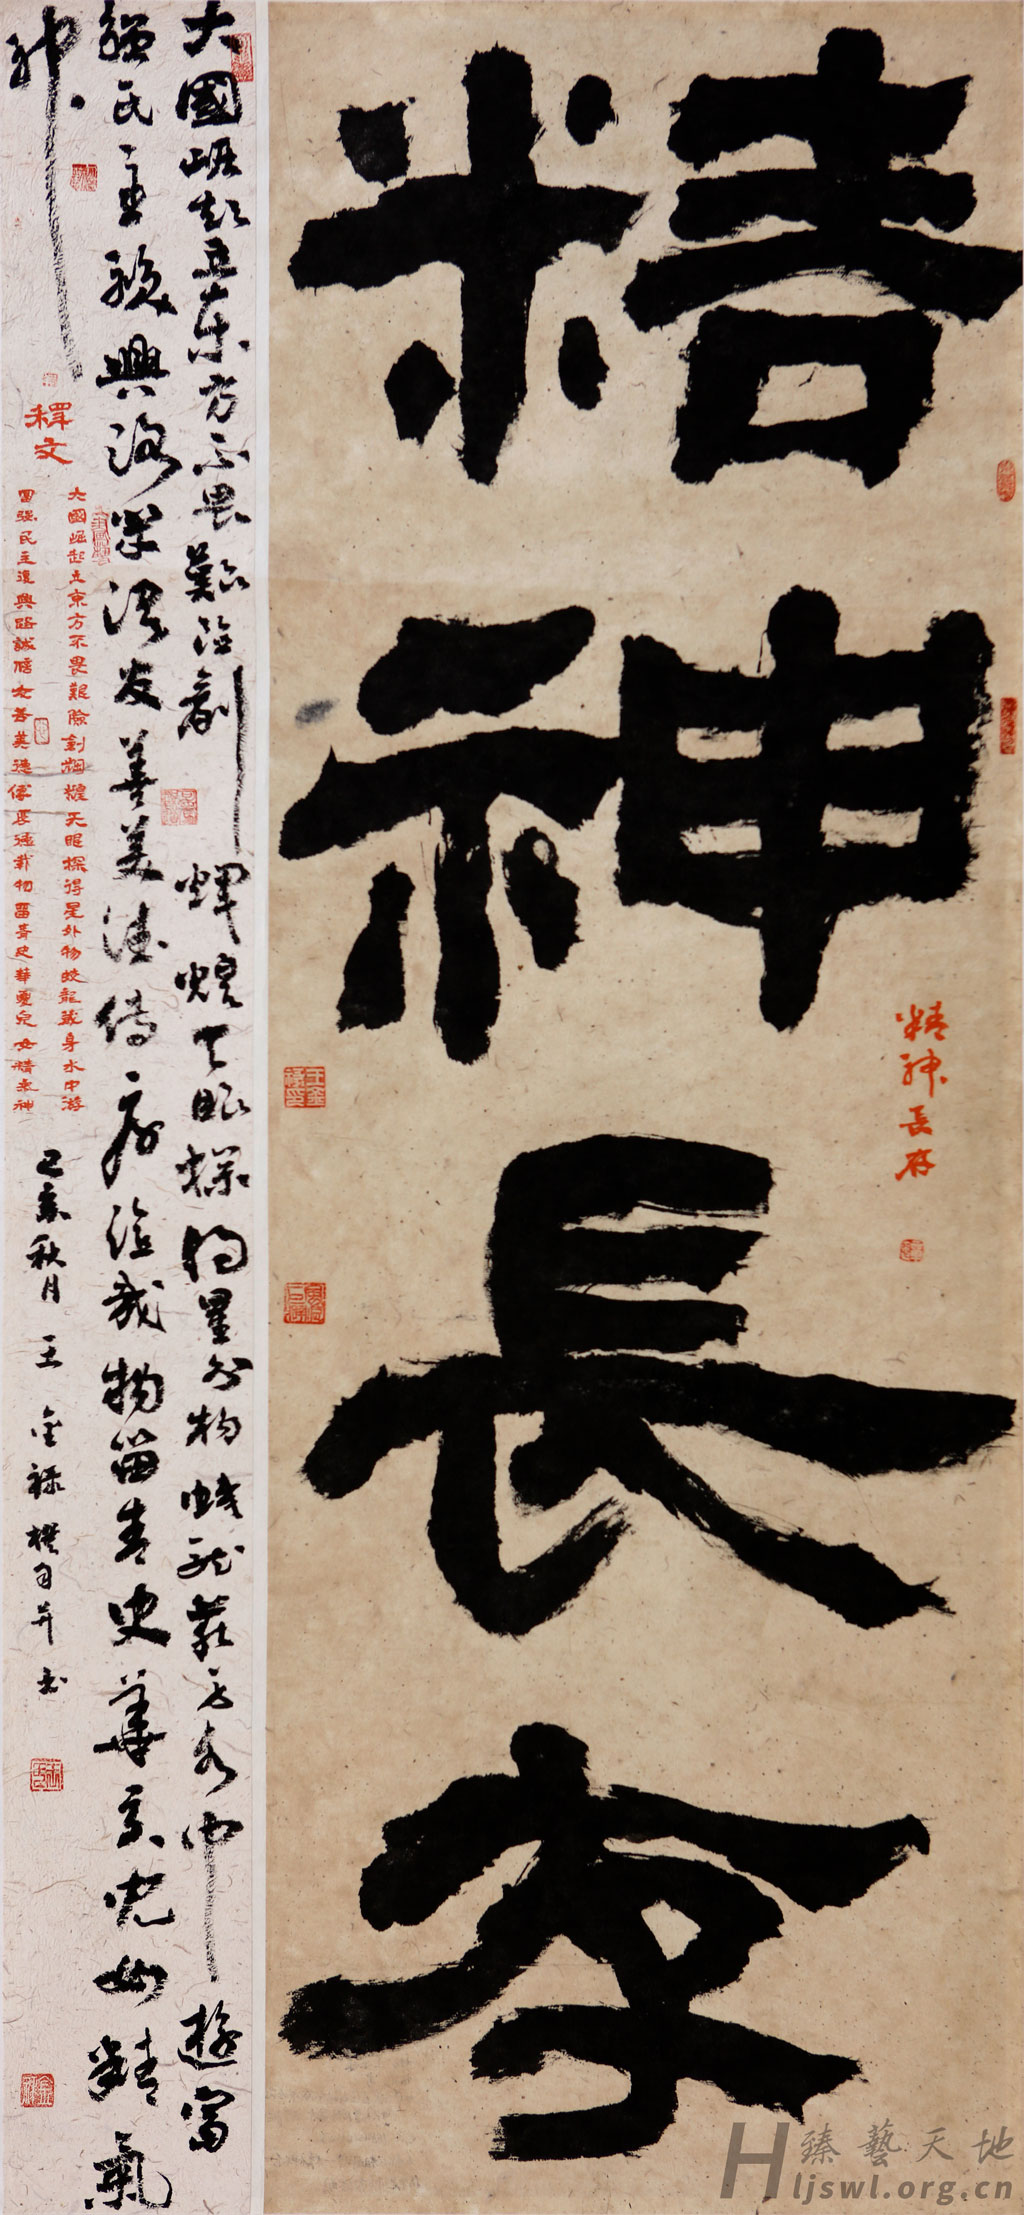 精神長存
精神長存
大國崛起立東方不畏艱險創輝煌天眼探得星外物蛟龍藏身水中游富
强民主復興路誠信友善美德傳厚德載物留青史華夏兒女精氣
神
釋文
大國崛起立東方不畏艱險創輝煌天眼探得星外物蛟龍藏身水中游
富强民主復興路誠信友善美德傳厚德載物留青史華夏兒女精氣神
己亥秋月 王金祿撰句并書
臻藝天地
Hljswl.org.cn